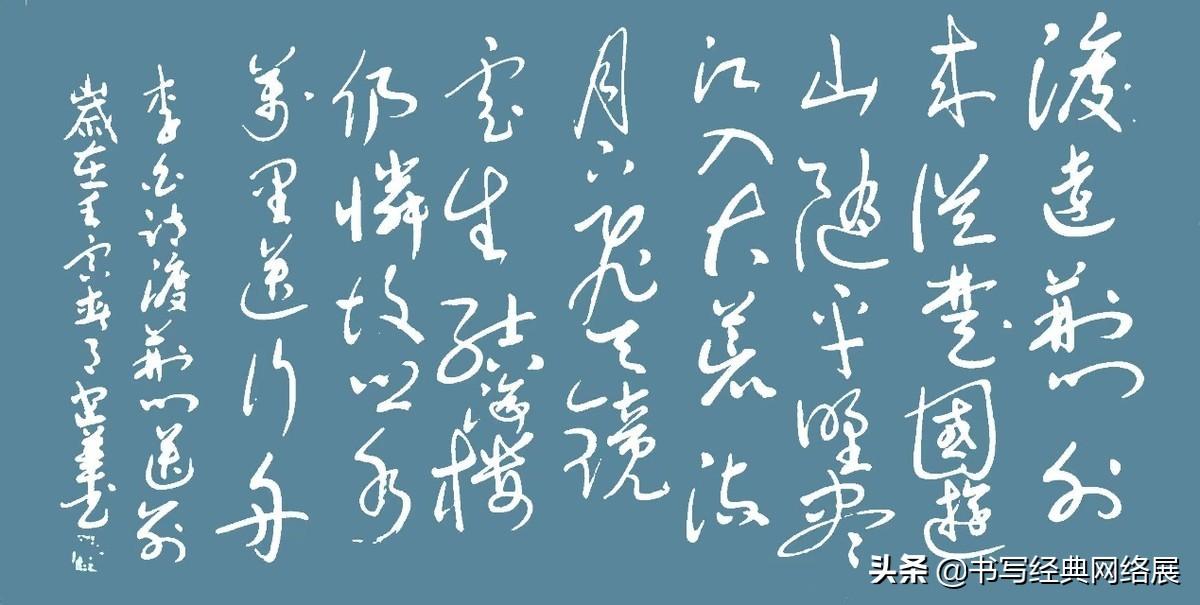 渡遠荊門外
来從楚國遊
山隨平野尽
江入大荒流
月下飛天鏡
雲生結海樓
仍憐故鄉水
萬里送行舟
李白詩渡荊門送別
歲在壬寅春月書
头条 @书写经典网络展